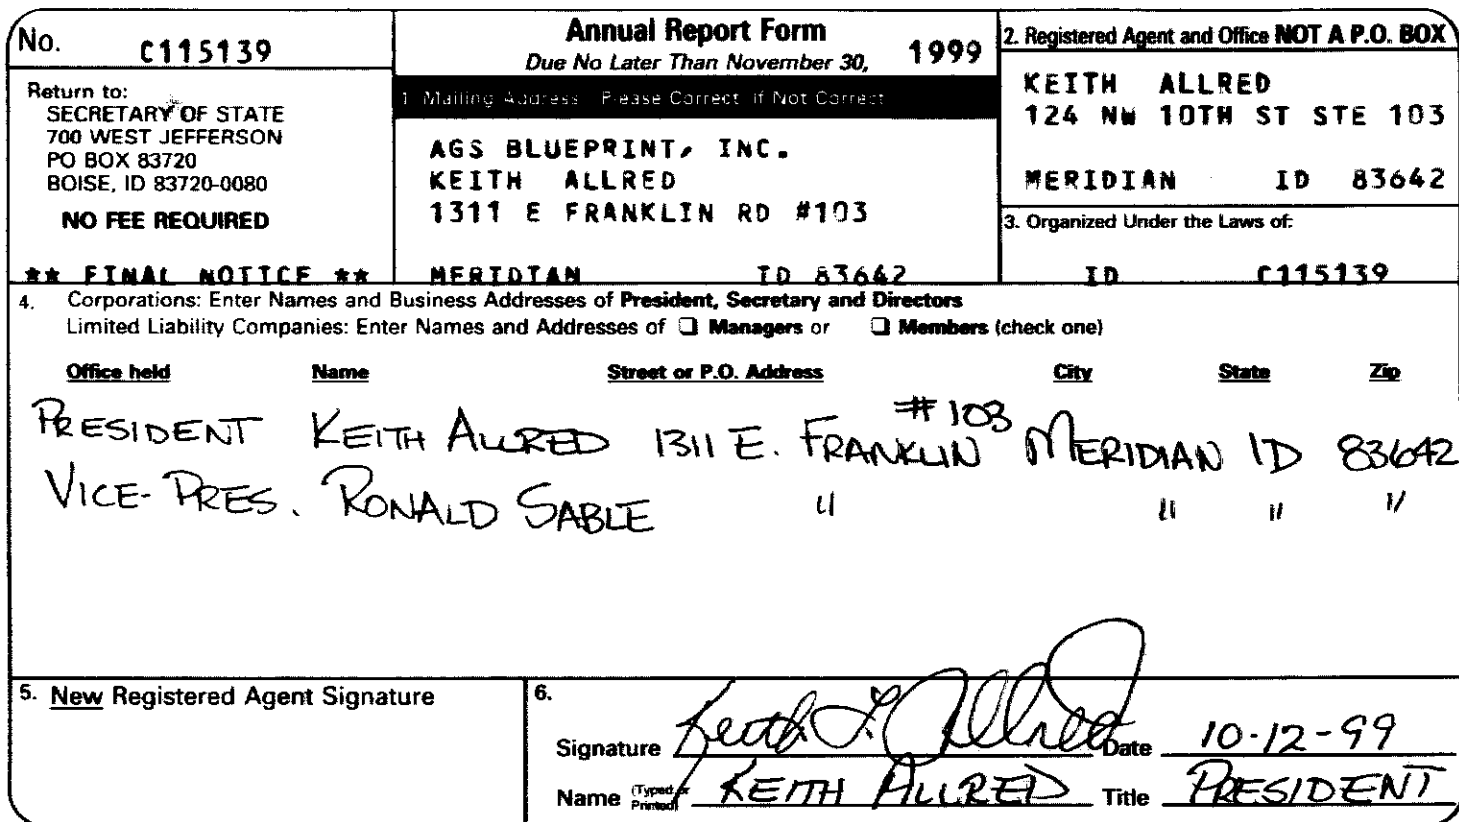 No. C115139
Return to:
SECRETARY OF STATE
700 WEST JEFFERSON
PO BOX 83720
BOISE, ID 83720-0080
NO FEE REQUIRED
** FINAL NOTICE **
Annual Report Form
Due No Later Than November 30, 1999
1. Mailing Address: Please Correct If Not Correct
AGS BLUEPRINT, INC.
KEITH ALLRED
1311 E FRANKLIN RD #103
MERIDIAN ID 83642
2. Registered Agent and Office NOT A P.O. BOX
KEITH ALLRED
124 NW 10TH ST STE 103
MERIDIAN ID 83642
3. Organized Under the Laws of:
ID C115139
4. Corporations: Enter Names and Business Addresses of President, Secretary and Directors
Limited Liability Companies: Enter Names and Addresses of ❑ Managers or ❑ Members (check one)
Office held Name Street or P.O. Address City State Zip
PRESIDENT KEITH ALLRED 1311 E. FRANKLIN #103 MERIDIAN ID 83642
VICE-PRES. RONALD SABLE " " " "
5. New Registered Agent Signature
6.
Signature Keith L. Allred Date 10-12-99
Name (Typed or Printed) KEITH ALLRED Title PRESIDENT